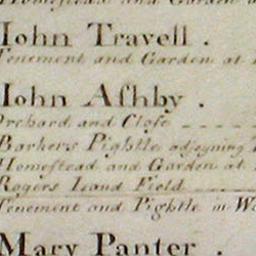 Homestead and Garden
John Travell .
Tenement and Garden at
John Ashby .
Orchard and Close
Barkers Pightle adjoyning
Homestead and Garden at
Rogers Leand Field
Tenement and Pightle in
Mary Panter .